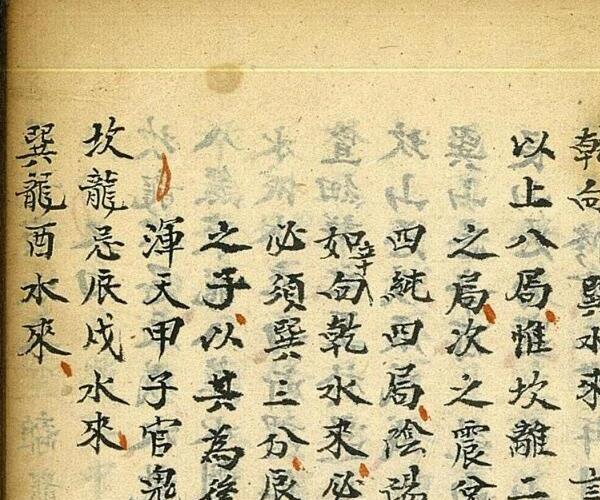 乾向 巽水來
以上八局惟坎離
之局次之震
四純四局陰陽
如立向乾水來必
必須巽三分辰
之子以其為
渾天甲子官鬼
坎龍忌辰戌水來
巽龍酉水來